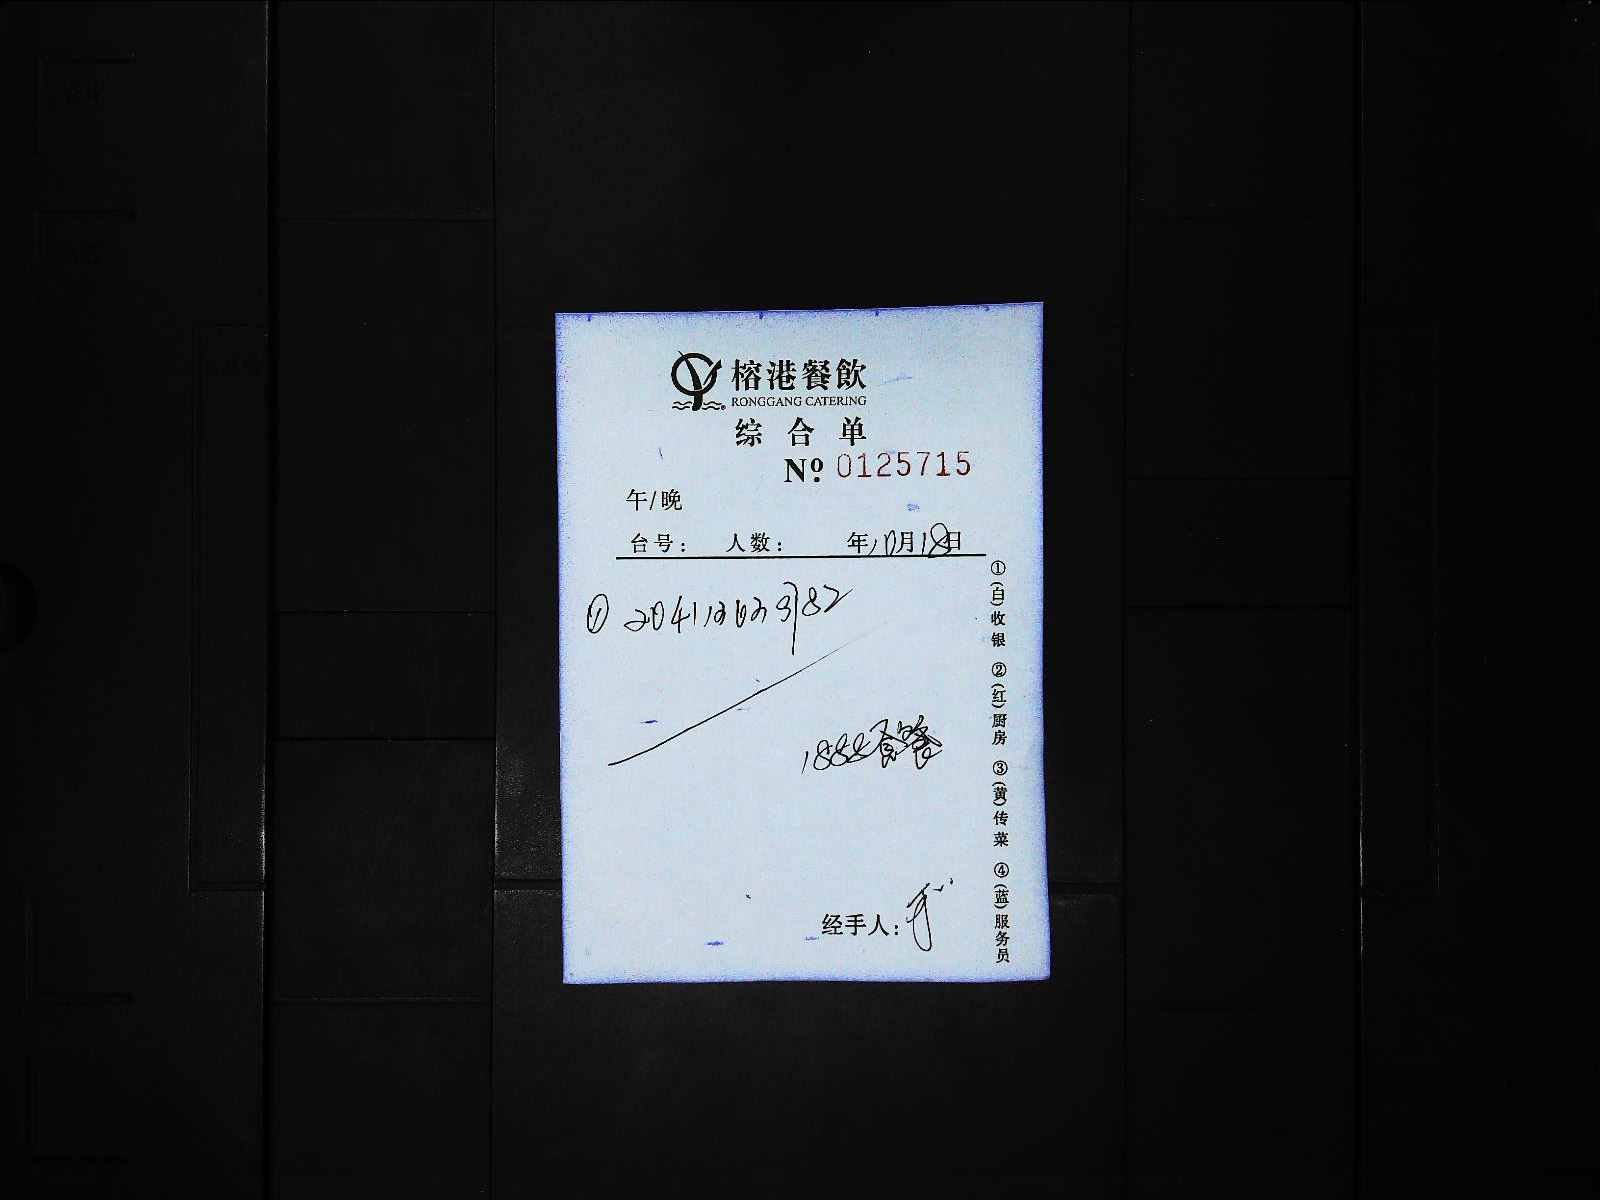 榕港餐飲
RONGGANG CATERING
综合单
№ 0125715
午/晚
台号： 人数： 年10月18日
① 1888套餐
经手人：
①(白)收银 ②(红)厨房 ③(黄)传菜 ④(蓝)服务员